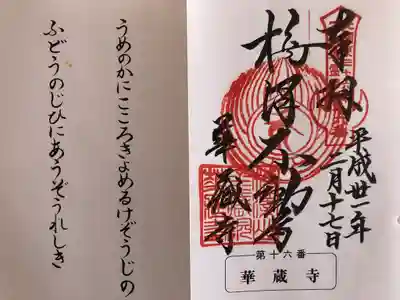 うめのかにこころきよめるけぞうじの
ふどうのじひにあうぞうれしき
奉拝
平成丗一年
二月十七日
華蔵寺
第十六番
華蔵寺